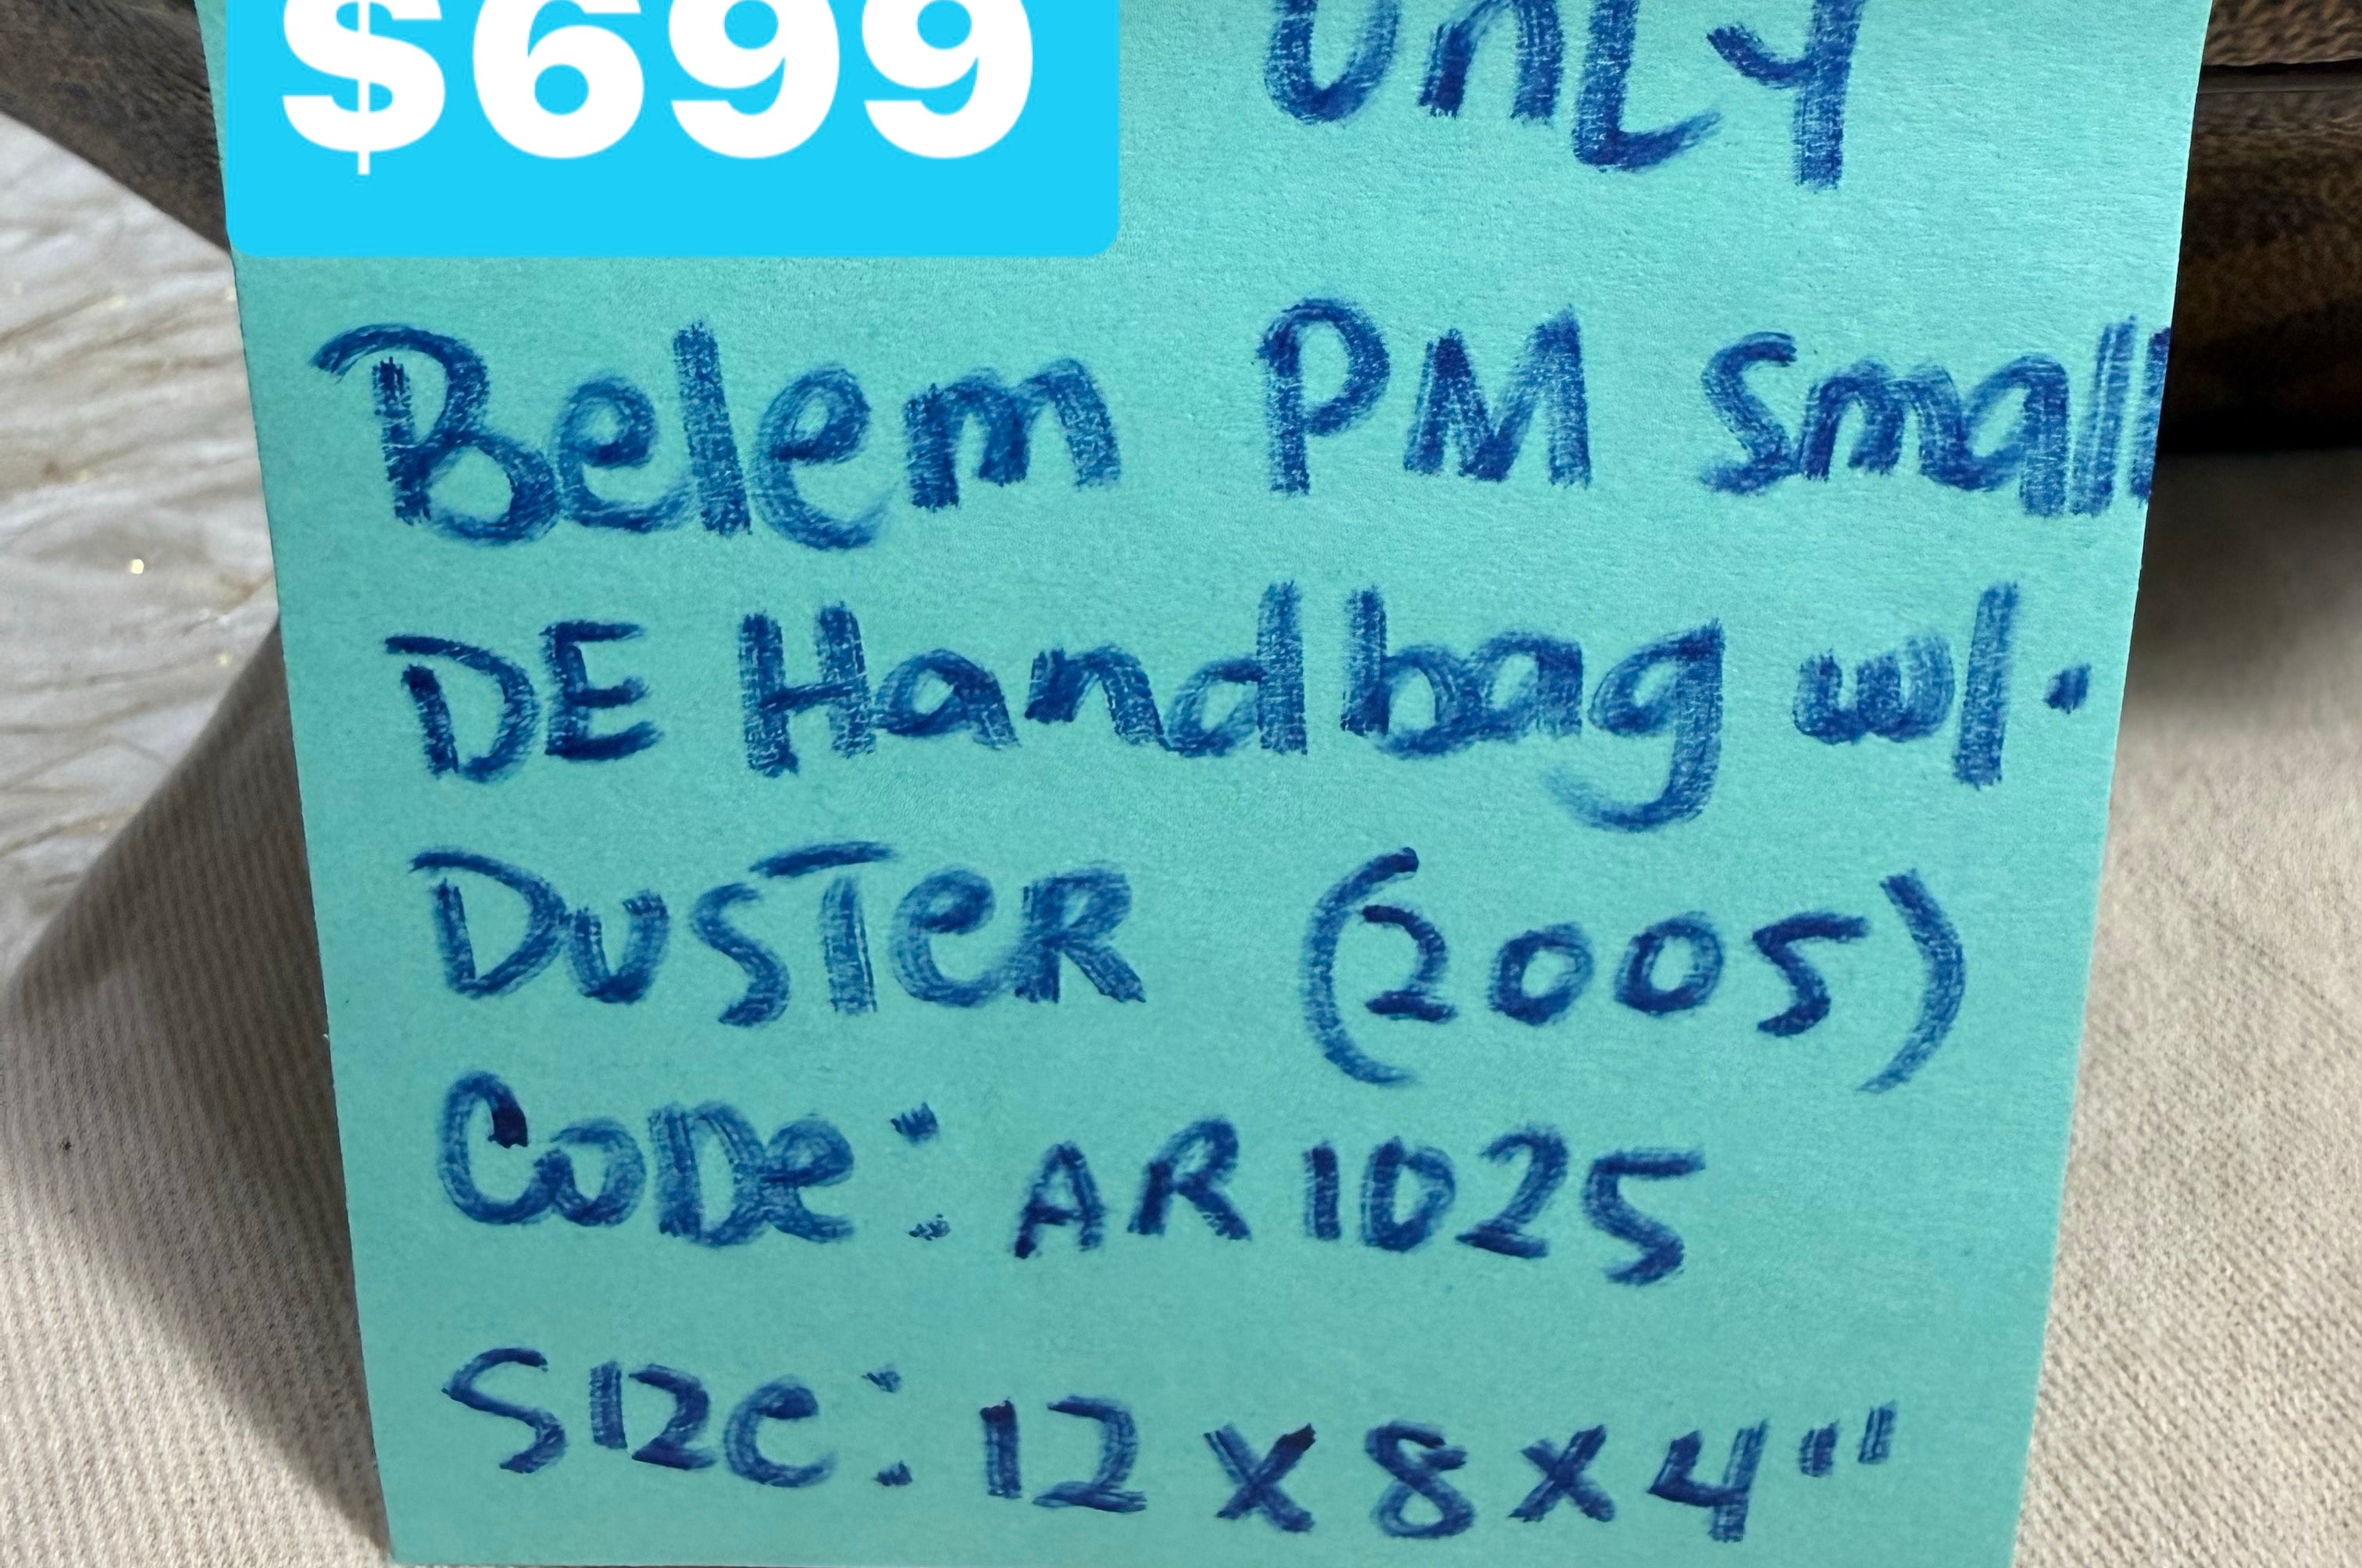 $699
ONLY
Belem PM Small
DE Handbag w/.
DUSTER (2005)
CODe: AR1025
SIZe: 12 x 8 x 4"